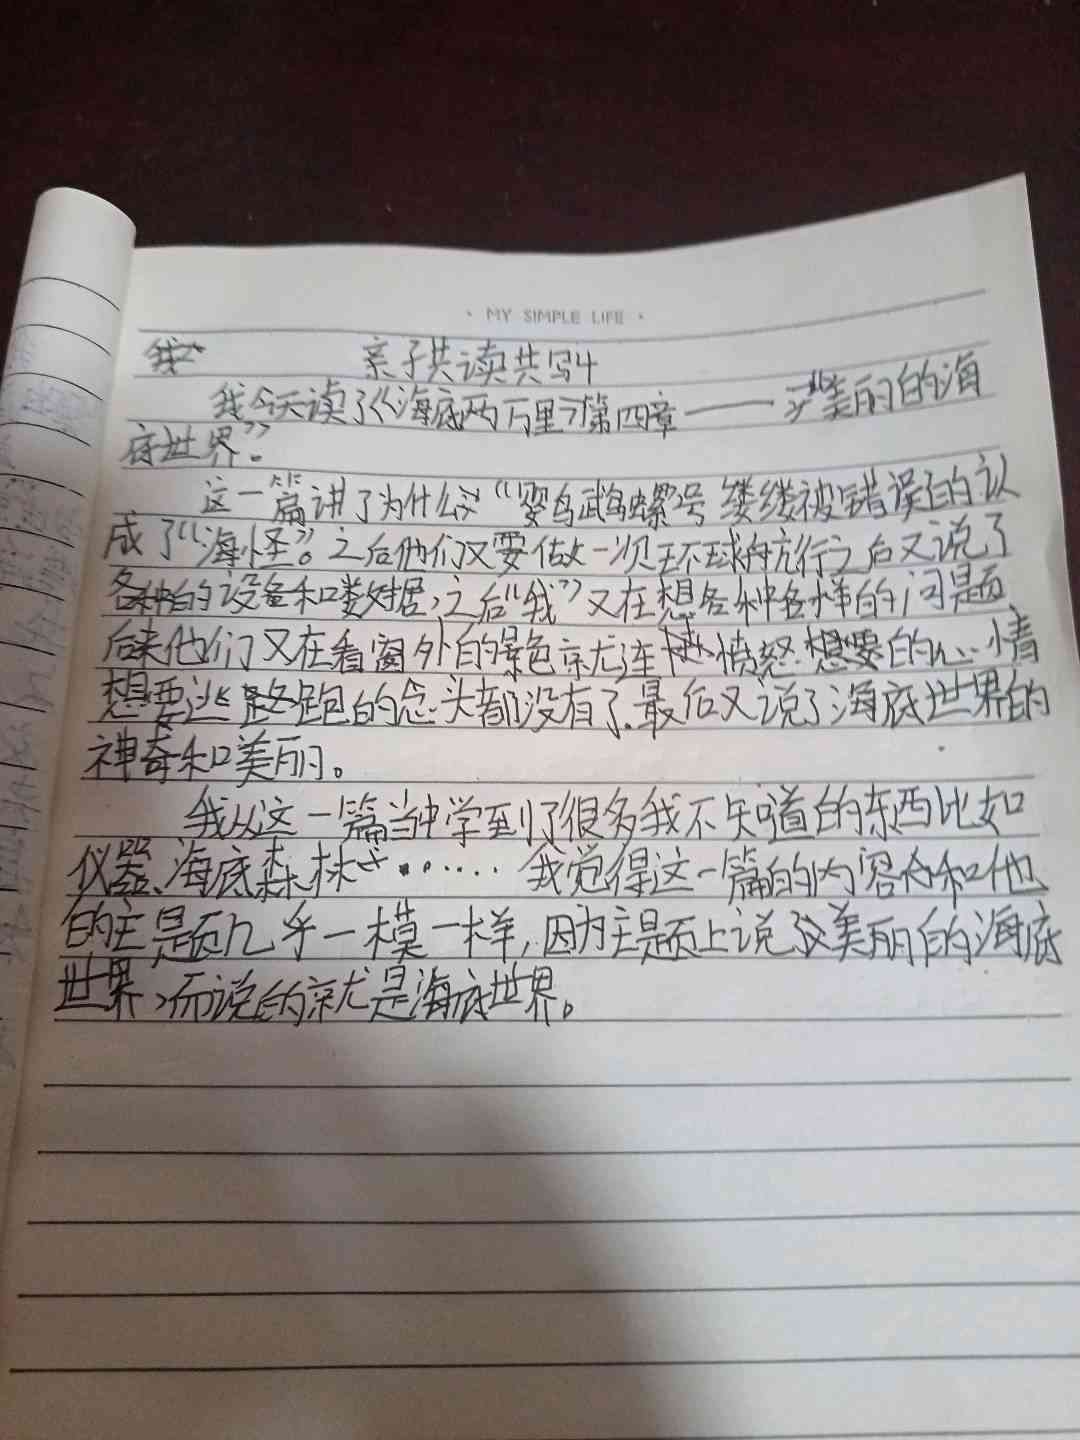 · MY SIMPLE LIFE ·
亲子共读共写4
我今天读了《海底两万里》第四章——“美丽的海
底世界”。
这一篇讲了为什么“鹦鹉螺号缕缕被错误的认
成了“海怪”。之后他们又要做一次环球的航行之后又说了
各种的设备和数据，之后“我”又在想各种各样的问题
后来他们又在看窗外的景色就连愤怒想要的心情
想要逃跑的念头都没有了。最后又说了海底世界的
神奇和美丽。
我从这一篇当中学到了很多我不知道的东西比如
仪器、海底森林……我觉得这一篇的内容和他
的主题几乎一模一样，因为主题上说了美丽的海底
世界，而说的就是海底世界。